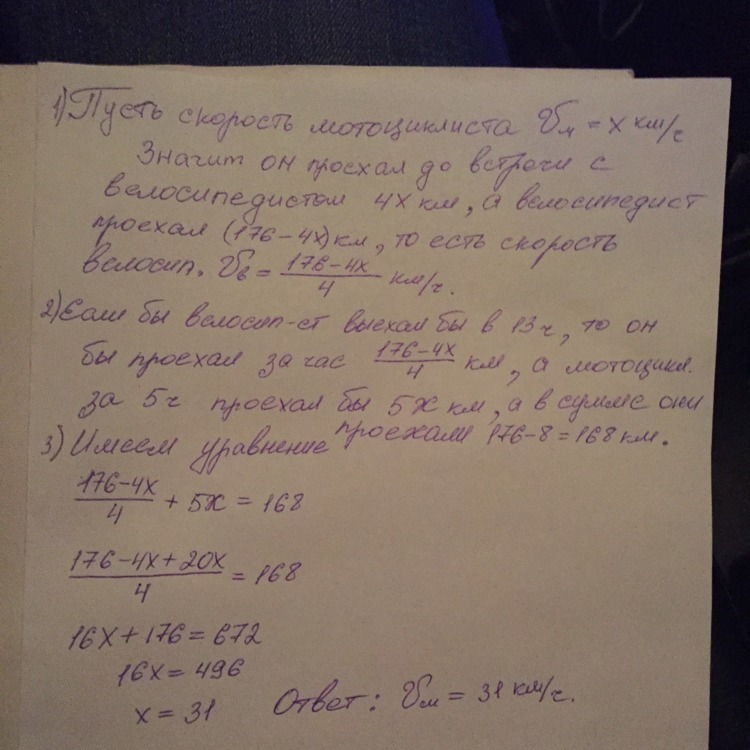 1) Пусть скорость мотоциклиста Vм = x км/ч
Значит он проехал до встречи с
велосипедистом 4x км, а велосипедист
проехал (176-4x) км, то есть скорость
велосип. Vв = (176-4x)/4 км/ч.
2) Если бы велосип-ст выехал бы в 13 ч, то он
бы проехал за час (176-4x)/4 км, а мотоцикл.
за 5 ч проехал бы 5x км, а в сумме они
проехали 176-8 = 168 км.
3) Имеем уравнение
(176-4x)/4 + 5x = 168
(176-4x+20x)/4 = 168
16x + 176 = 672
16x = 496
x = 31
Ответ: Vм = 31 км/ч.